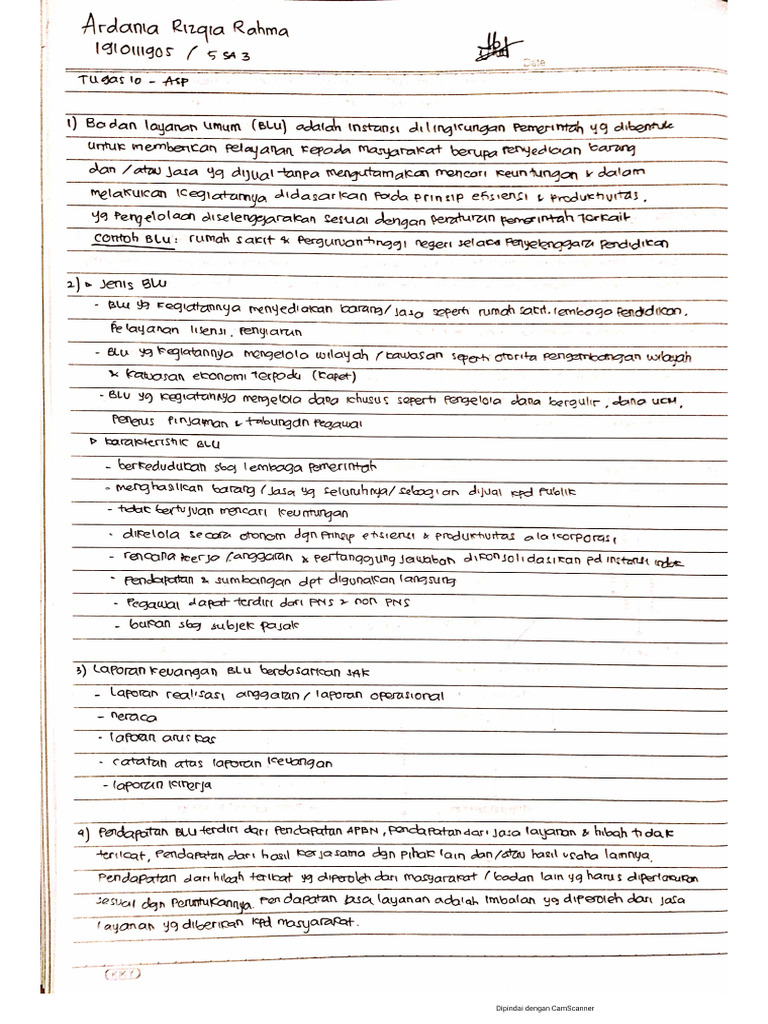 Ardania Rizqia Rahma
1910111905 / 5 SA 3
Date
Tugas 10 - ASP
1) Badan layanan umum (BLU) adalah instansi dilingkungan pemerintah yg dibentuk
untuk memberikan pelayanan kepada masyarakat berupa penyediaan barang
dan /atau jasa yg dijual tanpa mengutamakan mencari keuntungan & dalam
melakukan kegiatannya didasarkan pada prinsip efisiensi & produktivitas.
yg pengelolaan diselenggarakan sesuai dengan peraturan pemerintah terkait
Contoh BLU: rumah sakit & perguruan tinggi negeri selaca penyelenggara pendidikan
2) Jenis BLU
- BLU yg kegiatannya menyediakan barang/ jasa seperti rumah sakit. lembaga pendidikan.
Pelayanan lisensi. penyiaran
- BLU yg kegiatannya mengelola wilayah / kawasan seperti otorita pengembangan wilayah
& kawasan ekonomi terpadu (kapet)
- BLU yg kegiatannya mengelola dana khusus seperti pengelola dana bergulir, dana UKM,
penerus pinjaman & tabungan pegawai
karakteristik BLU
- berkedudukan sbg lembaga pemerintah
- menghasilkan barang / jasa yg seluruhnya/ sebagian dijual kpd publik
- tidak bertujuan mencari keuntungan
- dikelola secara otonom dgn prinsip efisiensi & produktivitas ala korporasi
- rencana kerja /anggaran & pertanggung jawaban dikonsolidasikan pd instansi induk
- pendapatan & sumbangan dpt digunakan langsung
- pegawai dapat terdiri dari PNS & non PNS
- bukan sbg subjek pajak
3) Laporan keuangan BLU berdasarkan SAK
- laporan realisasi anggaran / laporan operasional
- neraca
- laporan arus kas
- catatan atas laporan keuangan
- laporan kinerja
4) Pendapatan BLU terdiri dari pendapatan APBN, pendapatan dari jasa layanan & hibah tidak
terikat, pendapatan dari hasil kerjasama dgn pihak lain dan/atau hasil usaha lainnya.
Pendapatan dari hibah terikat yg diperoleh dari masyarakat / badan lain yg harus diperlakukan
sesuai dgn peruntukannya. Pendapatan jasa layanan adalah imbalan yg diperoleh dari jasa
layanan yg diberikan kpd masyarakat.
KKY
Dipindai dengan CamScanner